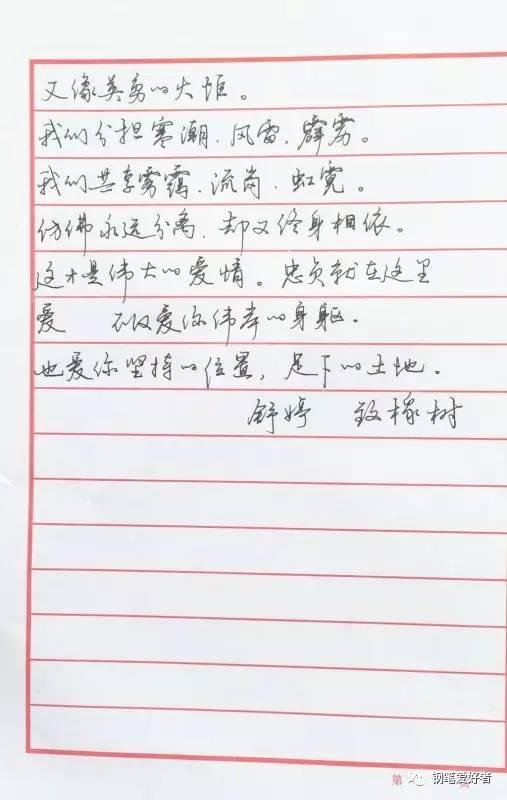 又像英勇的火炬。
我们分担寒潮、风雷、霹雳。
我们共享雾霭、流岚、虹霓。
仿佛永远分离、却又终身相依。
这才是伟大的爱情。忠贞就在这里
爱 不仅爱你伟岸的身躯.
也爱你坚持的位置，足下的土地.
舒婷 致橡树
第 页
钢笔爱好者